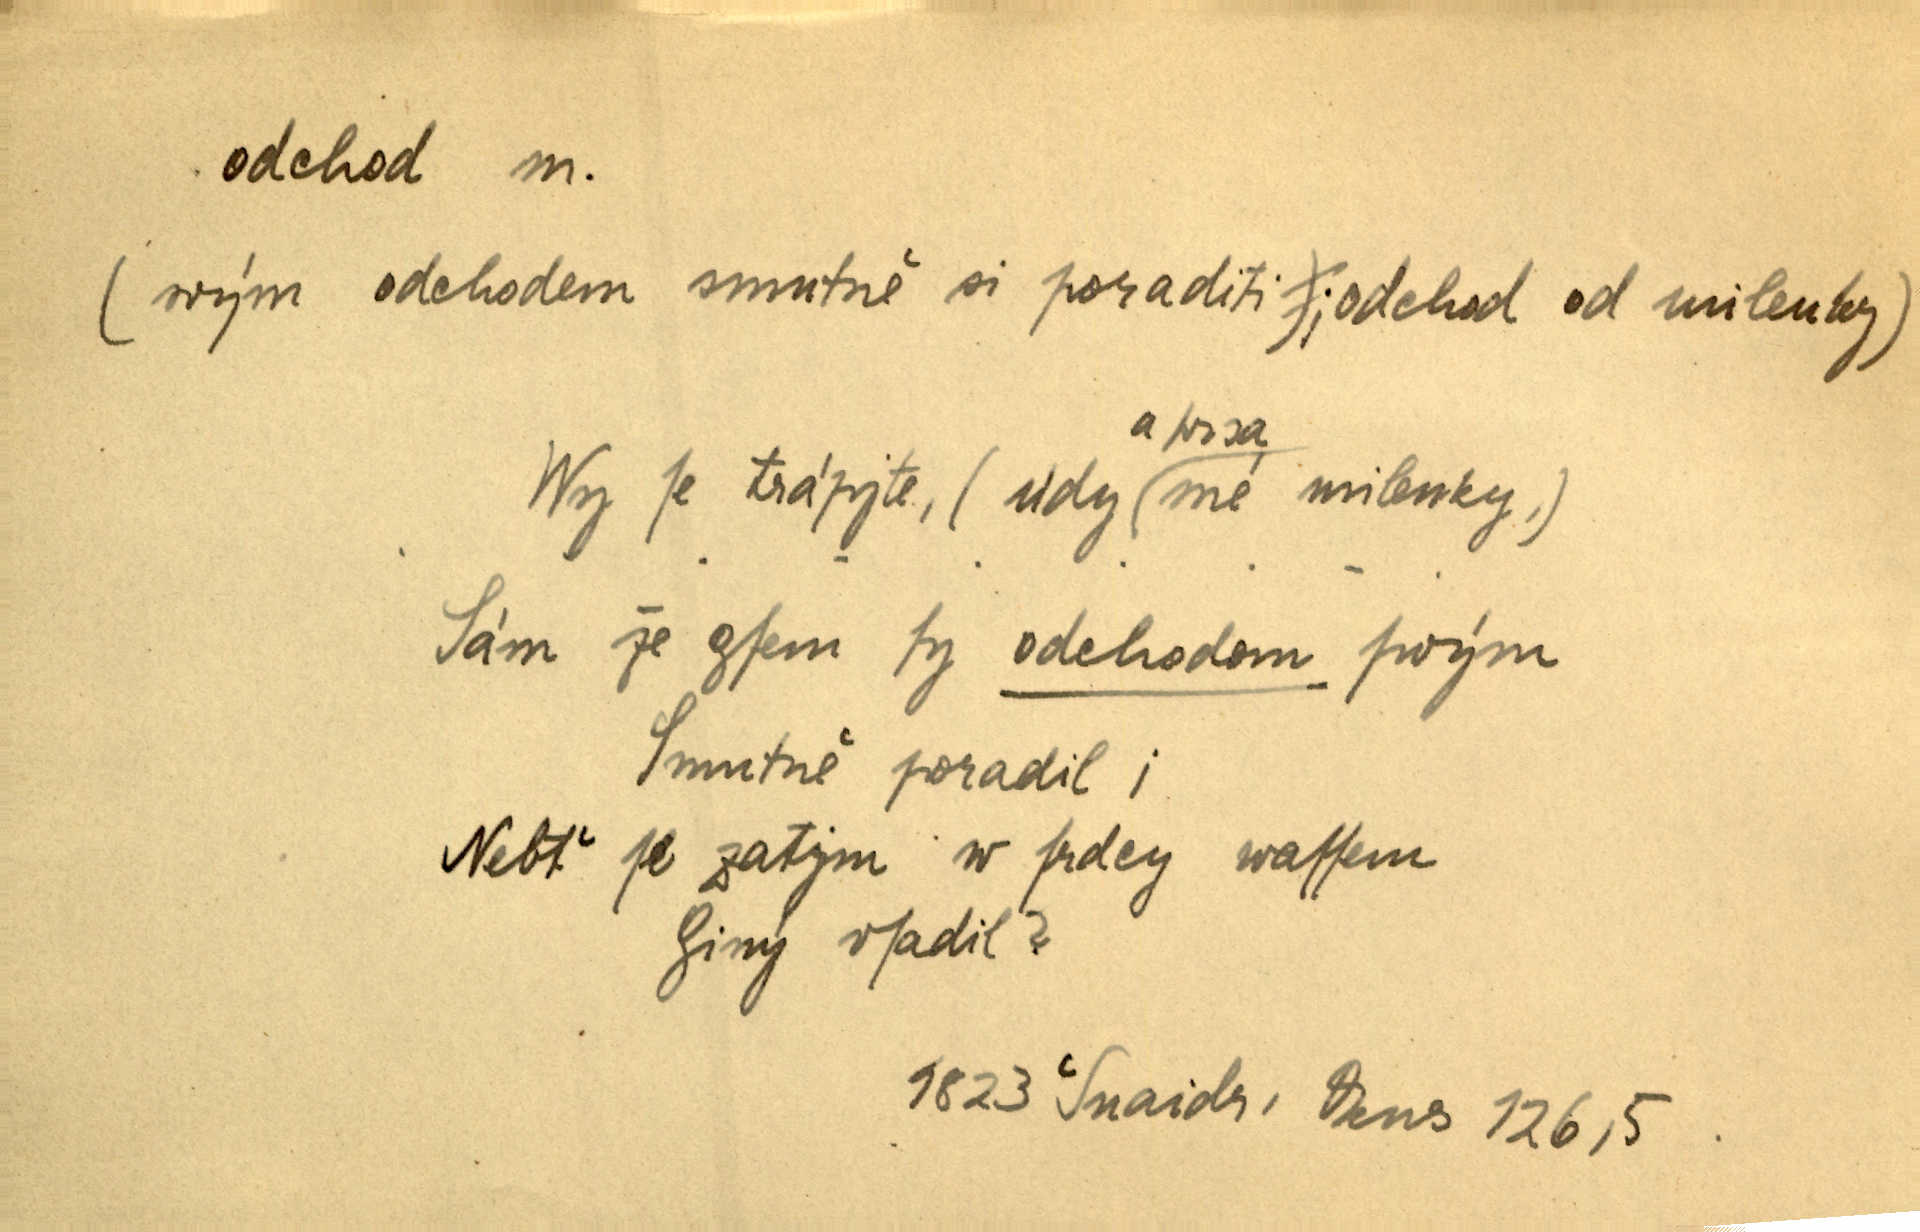 odchod m.
(svým odchodem smutně si poraditi); odchod od milenky)
a prsa
Wy ſe trápjte, (údy (mé milenky,)
Sám že gſem ſy odchodem ſwým
Smutně poradil;
Nebť ſe zatjm w ſrdcy waſſem
Giný vſadil?
1823 Šnaidr, Okus 126,5